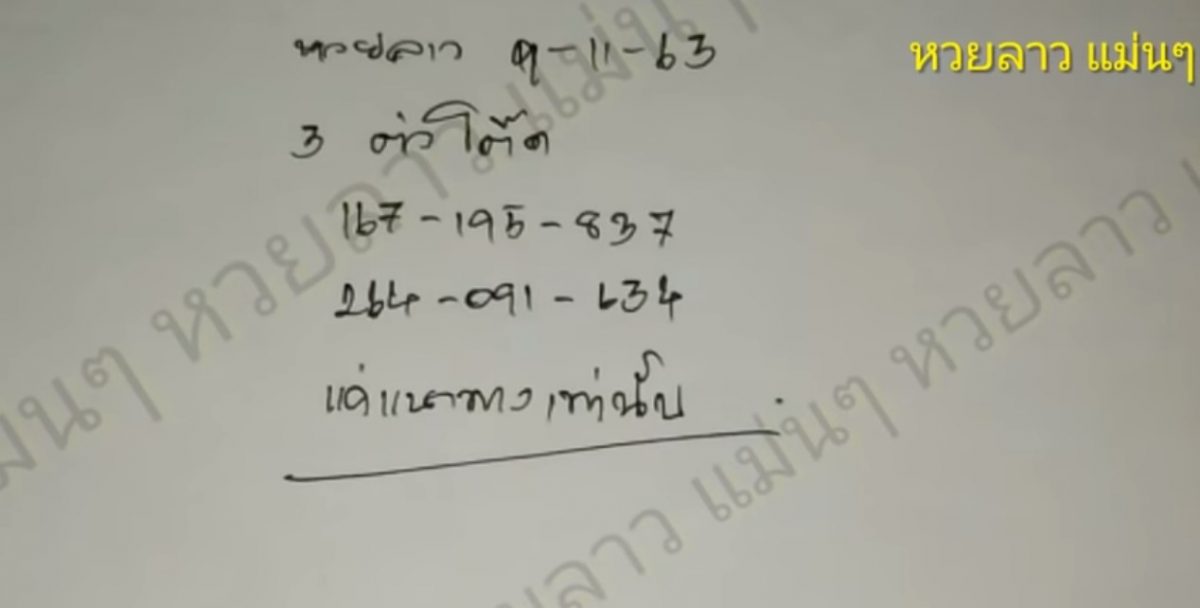 หวยลาว 9-11-63
หวยลาว แม่นๆ
3 ตัวโต๊ด
167-195-837
264-091-634
แค่แนวทางเท่านั้น
หวยลาว แม่นๆ
แม่นๆ หวยลาว
ลาว แม่นๆ หวยลาว